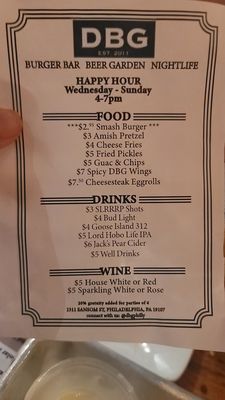 DBG
EST. 2011
BURGER BAR BEER GARDEN NIGHTLIFE
HAPPY HOUR
Wednesday - Sunday
4-7pm
FOOD
***$2.95 Smash Burger ***
$3 Amish Pretzel
$4 Cheese Fries
$5 Fried Pickles
$5 Guac & Chips
$7 Spicy DBG Wings
$7.50 Cheesesteak Eggrolls
DRINKS
$3 SLRRRP Shots
$4 Bud Light
$4 Goose Island 312
$5 Lord Hobo Life IPA
$6 Jack's Pear Cider
$5 Well Drinks
WINE
$5 House White or Red
$5 Sparkling White or Rose
20% gratuity added for parties of 6
1311 SANSOM ST, PHILADELPHIA, PA 19107
connect with us: @dbgphilly